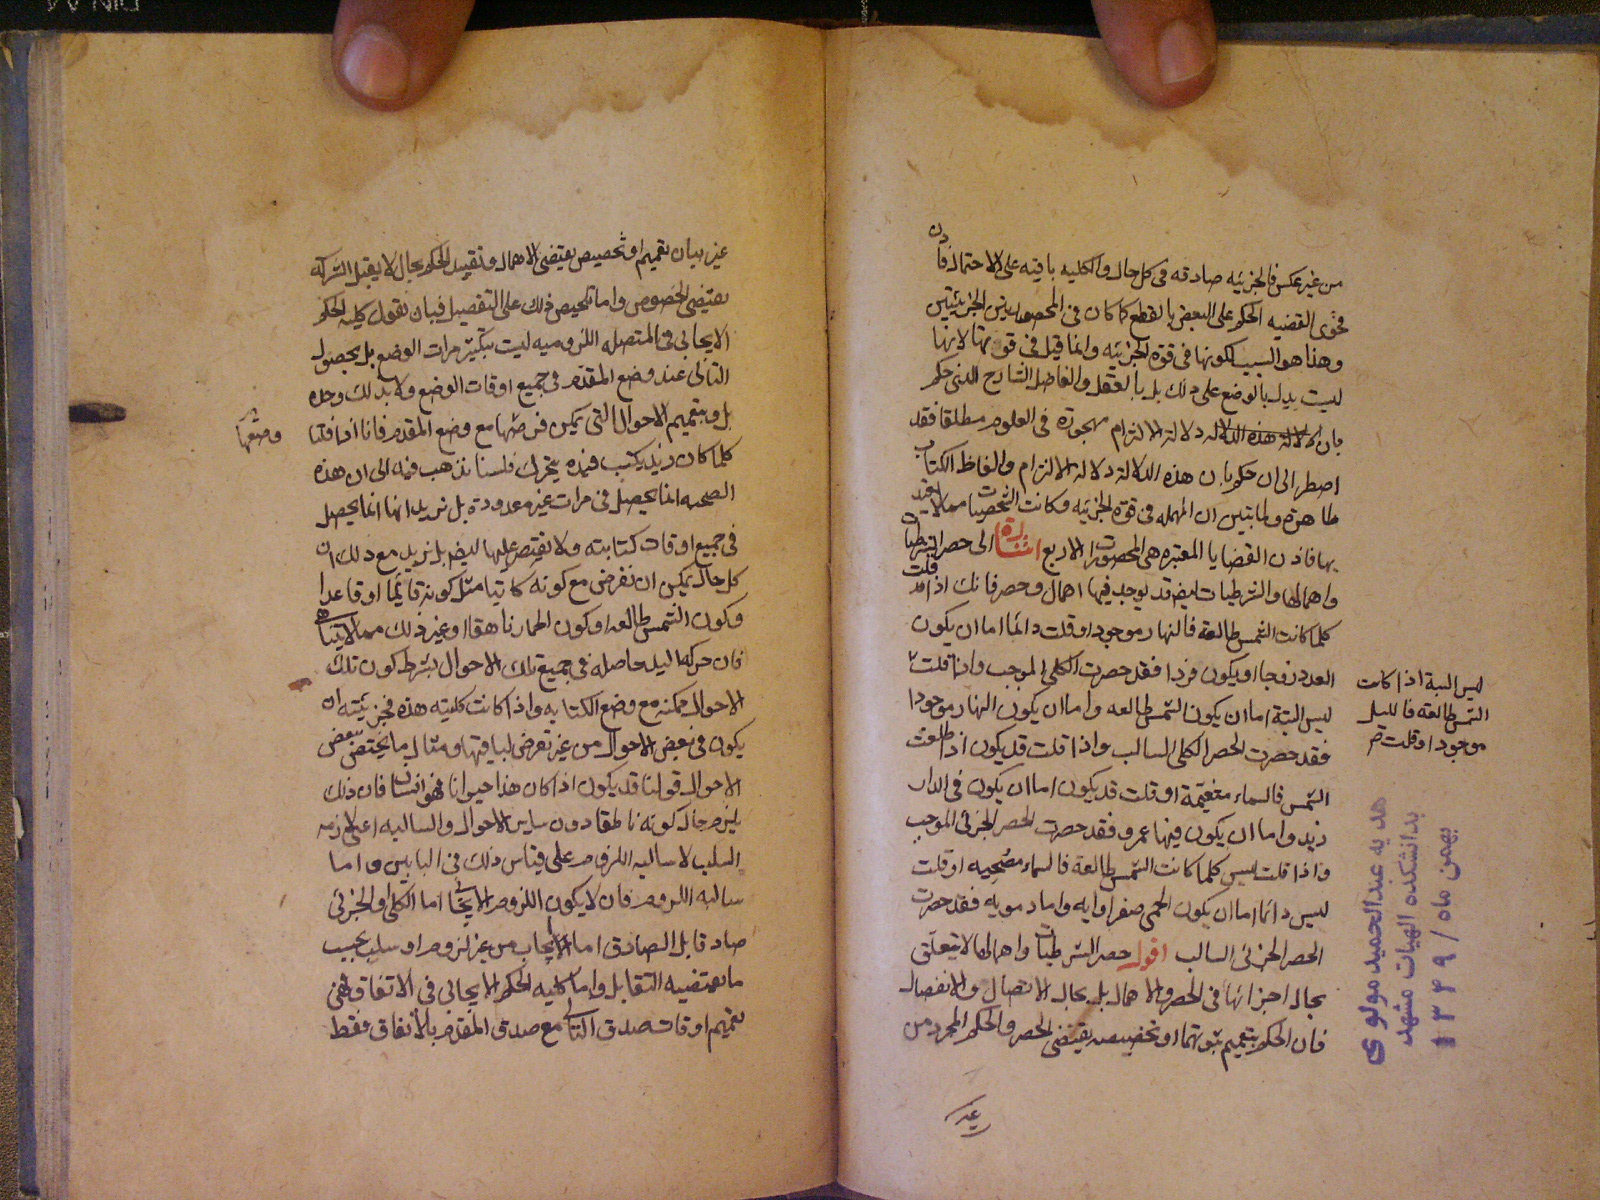 من غير عكس فالجزئيه صادقه فى كل حال والكليه باقيه على الاحتمال فاذن
فحوى القضيه الحكم على البعض بالقطع كما كان فى المحصورتين الجزئيتين
وهذا هو السبب لكونها فى قوه الجزئيه وانما قيل فى قوتها لانها
ليست يدل بالوضع على ذلك بل بالعقل والفاضل الشارح الذى حكم
بان دلالة الالتزام مهجورة فى العلوم مطلقا فقد
اضطر الى ان حكم بان هذه الدلالة دلالة الالتزام والفاظ الكتاب
ظاهرة ولما تبين ان المهمله فى قوة الجزئيه وكانت الشخصيات مما لا يعتد
بها فاذن القضايا المعتبره هى المحصورات الاربع اشارة الى حصر الشرطيات
واهمالها والشرطيات ايضا قد يوجد فيها اهمال وحصر فانك اذا قلت
كلما كانت الشمس طالعة فالنهار موجود او قلت دائما اما ان يكون
العدد زوجا او يكون فردا فقد حصرت الكلى الموجب واذا قلت
ليس البتة اما ان يكون الشمس طالعه واما ان يكون النهار موجودا
فقد حصرت الحصر الكلى السالب واذا قلت قد يكون اذا طلعت
الشمس فالسماء متغيمة او قلت قد يكون اما ان يكون فى الدار
زيد واما ان يكون فيها عمرو فقد حصرت الحصر الجزئى الموجب
واذا قلت ليس كلما كانت الشمس طالعة فالسماء مصحيه او قلت
ليس دائما اما ان يكون الحمى صفراوايه واما دمويه فقد حصرت
الحصر الجزئى السالب اقول حصر الشرطيات واهمالها لا يتعلق
بحال اجزائها فى الحصر والاهمال بل بحال الاتصال والانفصال
فان الحكم بتعميم ثبوتهما او تخصيصه يقتضى الحصر والحكم المجرد من
ليس البتة اذا كانت
الشمس طالعة فالليل
موجود او قلت
هديه عبدالحميد مولوى
بدانشكده الهيات مشهد
بهمن ماه / ١٣٤٩
غير بيان تعميم او تخصيص يقتضى الاهمال وتقييد الحكم بحال لا يقبل الشركه
يقتضى الخصوص واما تلخيص ذلك على التفصيل فبان نقول كليه الحكم
الايجابى فى المتصله اللزوميه ليست بتكثير مرات الوضع بل بحصول
التالى عند وضع المقدم فى جميع اوقات الوضع ولا بذلك وحده
بل وبتعميم الاحوال التى يمكن فرضها مع وضع المقدم فانا اذا قلنا
وضعها
كلما كان زيد يكتب فيده يتحرك فلسنا نذهب فيه الى ان هذه
الصحبه انما يحصل فى مرات غير معدودة بل نريد انها انما يحصل
فى جميع اوقات كتابته ولا نقتصر عليها ايضا بل نريد مع ذلك ان
كل حال يمكن ان نفرض مع كونه كاتبا مثل كونه قائما او قاعدا
وكون الشمس طالعه او كون الحمار ناهقا او غير ذلك مما لا يتناهى
فان حركه اليد حاصله فى جميع تلك الاحوال بشرط كون تلك
الاحوال ممكنه مع وضع الكتابه واذا كانت كليته هذه فجزئيته ان
يكون فى بعض الاحوال من غير تعرض لباقيها ومثال ما يختص ببعض
الاحوال قولنا قد يكون اذا كان هذا حيوانا فهو انسان فان ذلك
يلزم حال كونه ناطقا دون ساير الاحوال والسالبه اعنى لازمه
السلب لا سالبه اللزوم على قياس ذلك فى البابين واما
سالبه اللزوم فان لا يكون اللزوم الايجابى اما الكلى او الجزئى
صادقا بل الصادق اما الايجاب من غير لزوم او سلب بحسب
ما يقتضيه التقابل واما كليه الحكم الايجابى فى الاتفاق فهى
تعميم اوقات صدق التالى مع صدق المقدم بالاتفاق فقط